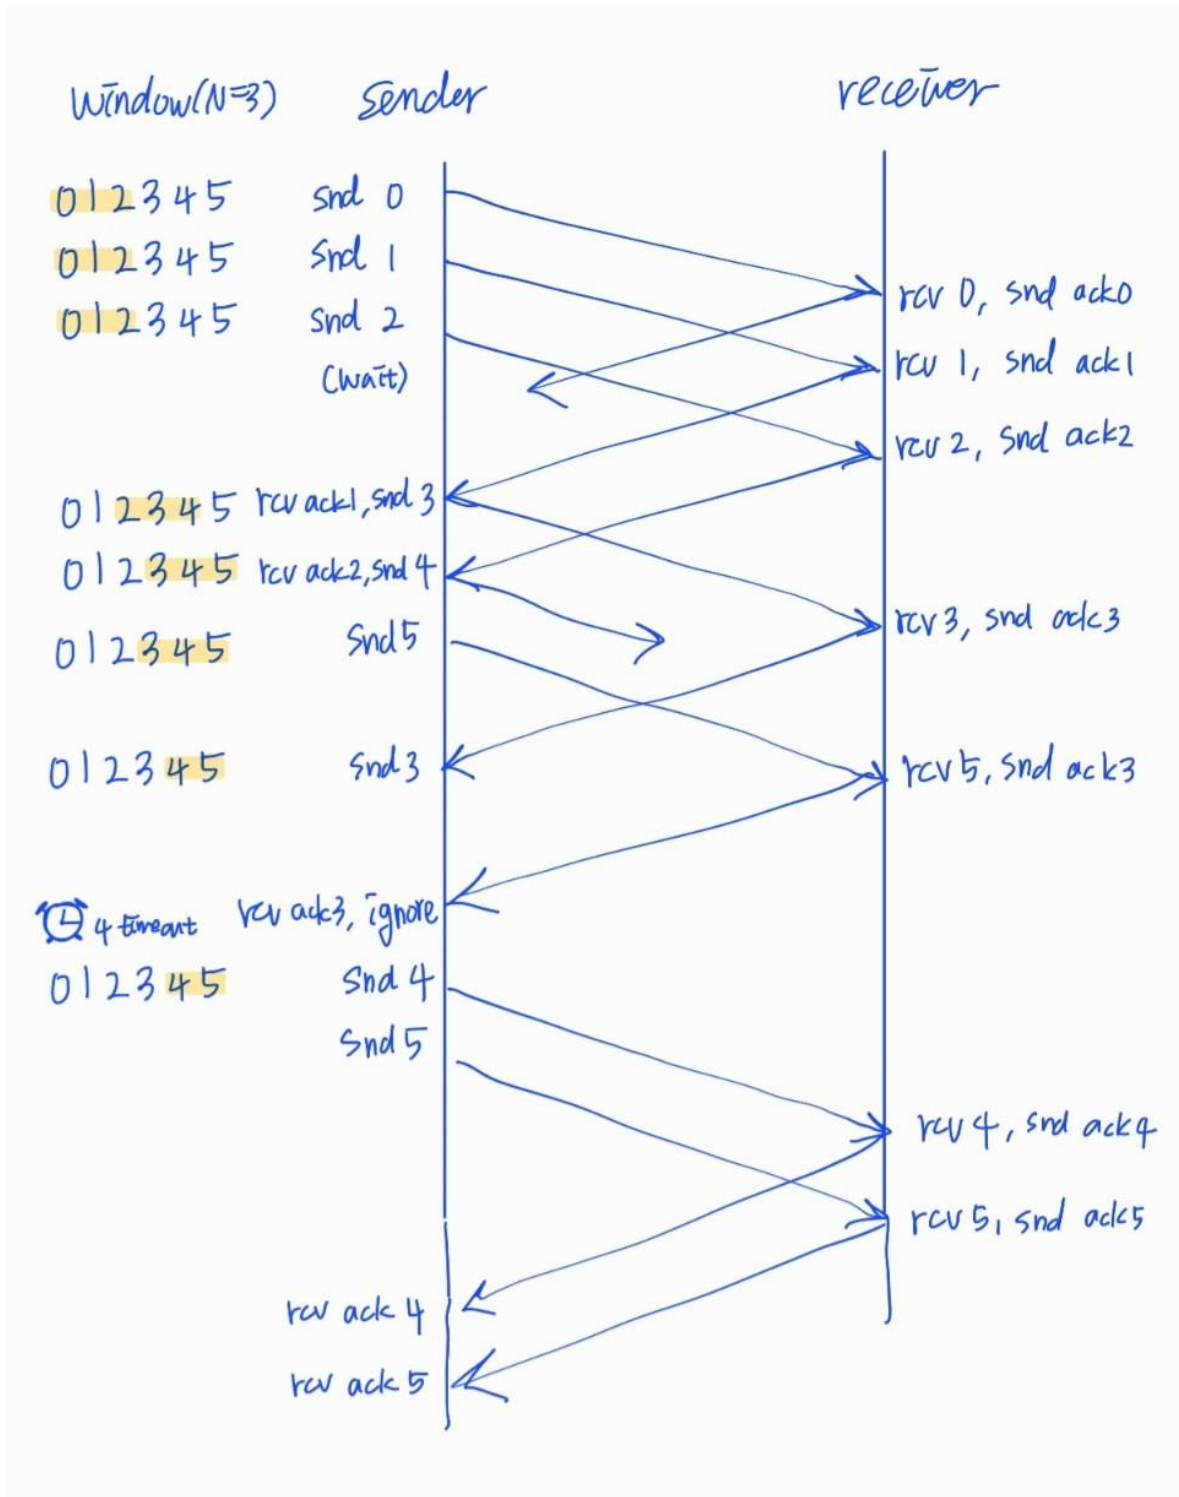 Window(N=3) sender receiver
0 1 2 3 4 5 snd 0
0 1 2 3 4 5 snd 1
rcv 0, snd ack0
0 1 2 3 4 5 snd 2
rcv 1, snd ack1
(wait)
rcv 2, snd ack2
0 1 2 3 4 5 rcv ack1, snd 3
0 1 2 3 4 5 rcv ack2, snd 4
rcv 3, snd ack3
0 1 2 3 4 5 Snd 5
0 1 2 3 4 5 snd 3
rcv 5, snd ack3
4 timeout rcv ack3, ignore
0 1 2 3 4 5 Snd 4
Snd 5
rcv 4, snd ack4
rcv 5, snd ack5
rcv ack 4
rcv ack 5